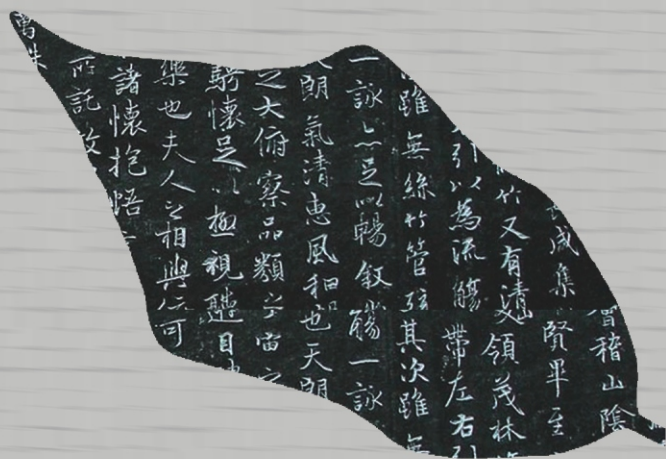 會稽山陰
咸集賢畢至
竹又有清領茂林
引以為流觴帶左右引
雖無絲竹管弦其次雖無
一詠亦足以暢叙觴一詠
朗氣清惠風和也天朗
之大俯察品類宇宙之
騁懷足以極視聽目
樂也夫人之相與信可
諸懷抱悟
所託放
萬殊